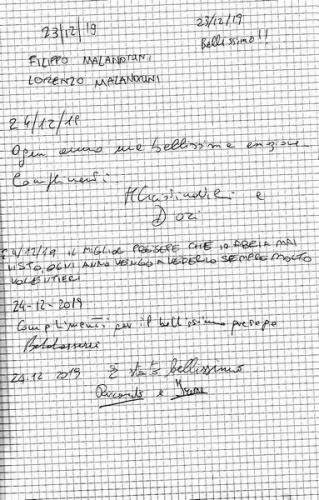 23/12/19
23/12/19
Bellissimo!!
FILIPPO MALANDRINI
LORENZO MALANDRINI
24/12/19
Ogni anno una bellissima emozione
Complimenti
e
Dori
24/12/19 IL MIGLIOR PRESEPE CHE IO ABBIA MAI
VISTO, OGNI ANNO VENGO A VEDERLO SEMPRE MOLTO
VOLENTIERI
24-12-2019
Complimenti per il bellissimo presepe
Baldasserri
24.12 2019 È stato bellissimo
Riccardo e Irene